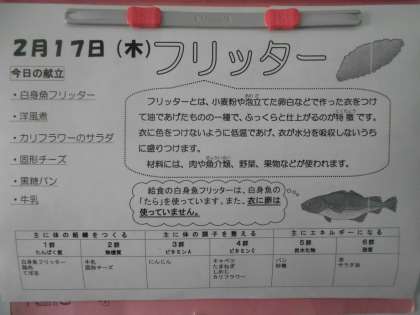 2月17日（木）フリッター
今日の献立
・白身魚フリッター
・洋風煮
・カリフラワーのサラダ
・固形チーズ
・黒糖パン
・牛乳
フリッターとは、小麦粉や泡立てた卵白などで作った衣をつけ
て油であげたものの一種で、ふっくらと仕上がるのが特徴です。
衣に色をつけないように低温であげ、衣が水分を吸収しないうち
に盛りつけます。
材料には、肉や魚介類、野菜、果物などが使われます。
給食の白身魚フリッターは、白身魚の
「たら」を使っています。また、衣に卵は
使っていません。
主に体の組織をつくる 主に体の調子を整える 主にエネルギーになる
1群 2群 3群 4群 5群 6群
たんぱく質 無機質 ビタミンA ビタミンC 炭水化物 脂質
白身魚フリッター 牛乳 にんじん キャベツ パン 油
鶏肉 固形チーズ たまねぎ 砂糖 サラダ油
しめじ
カリフラワー